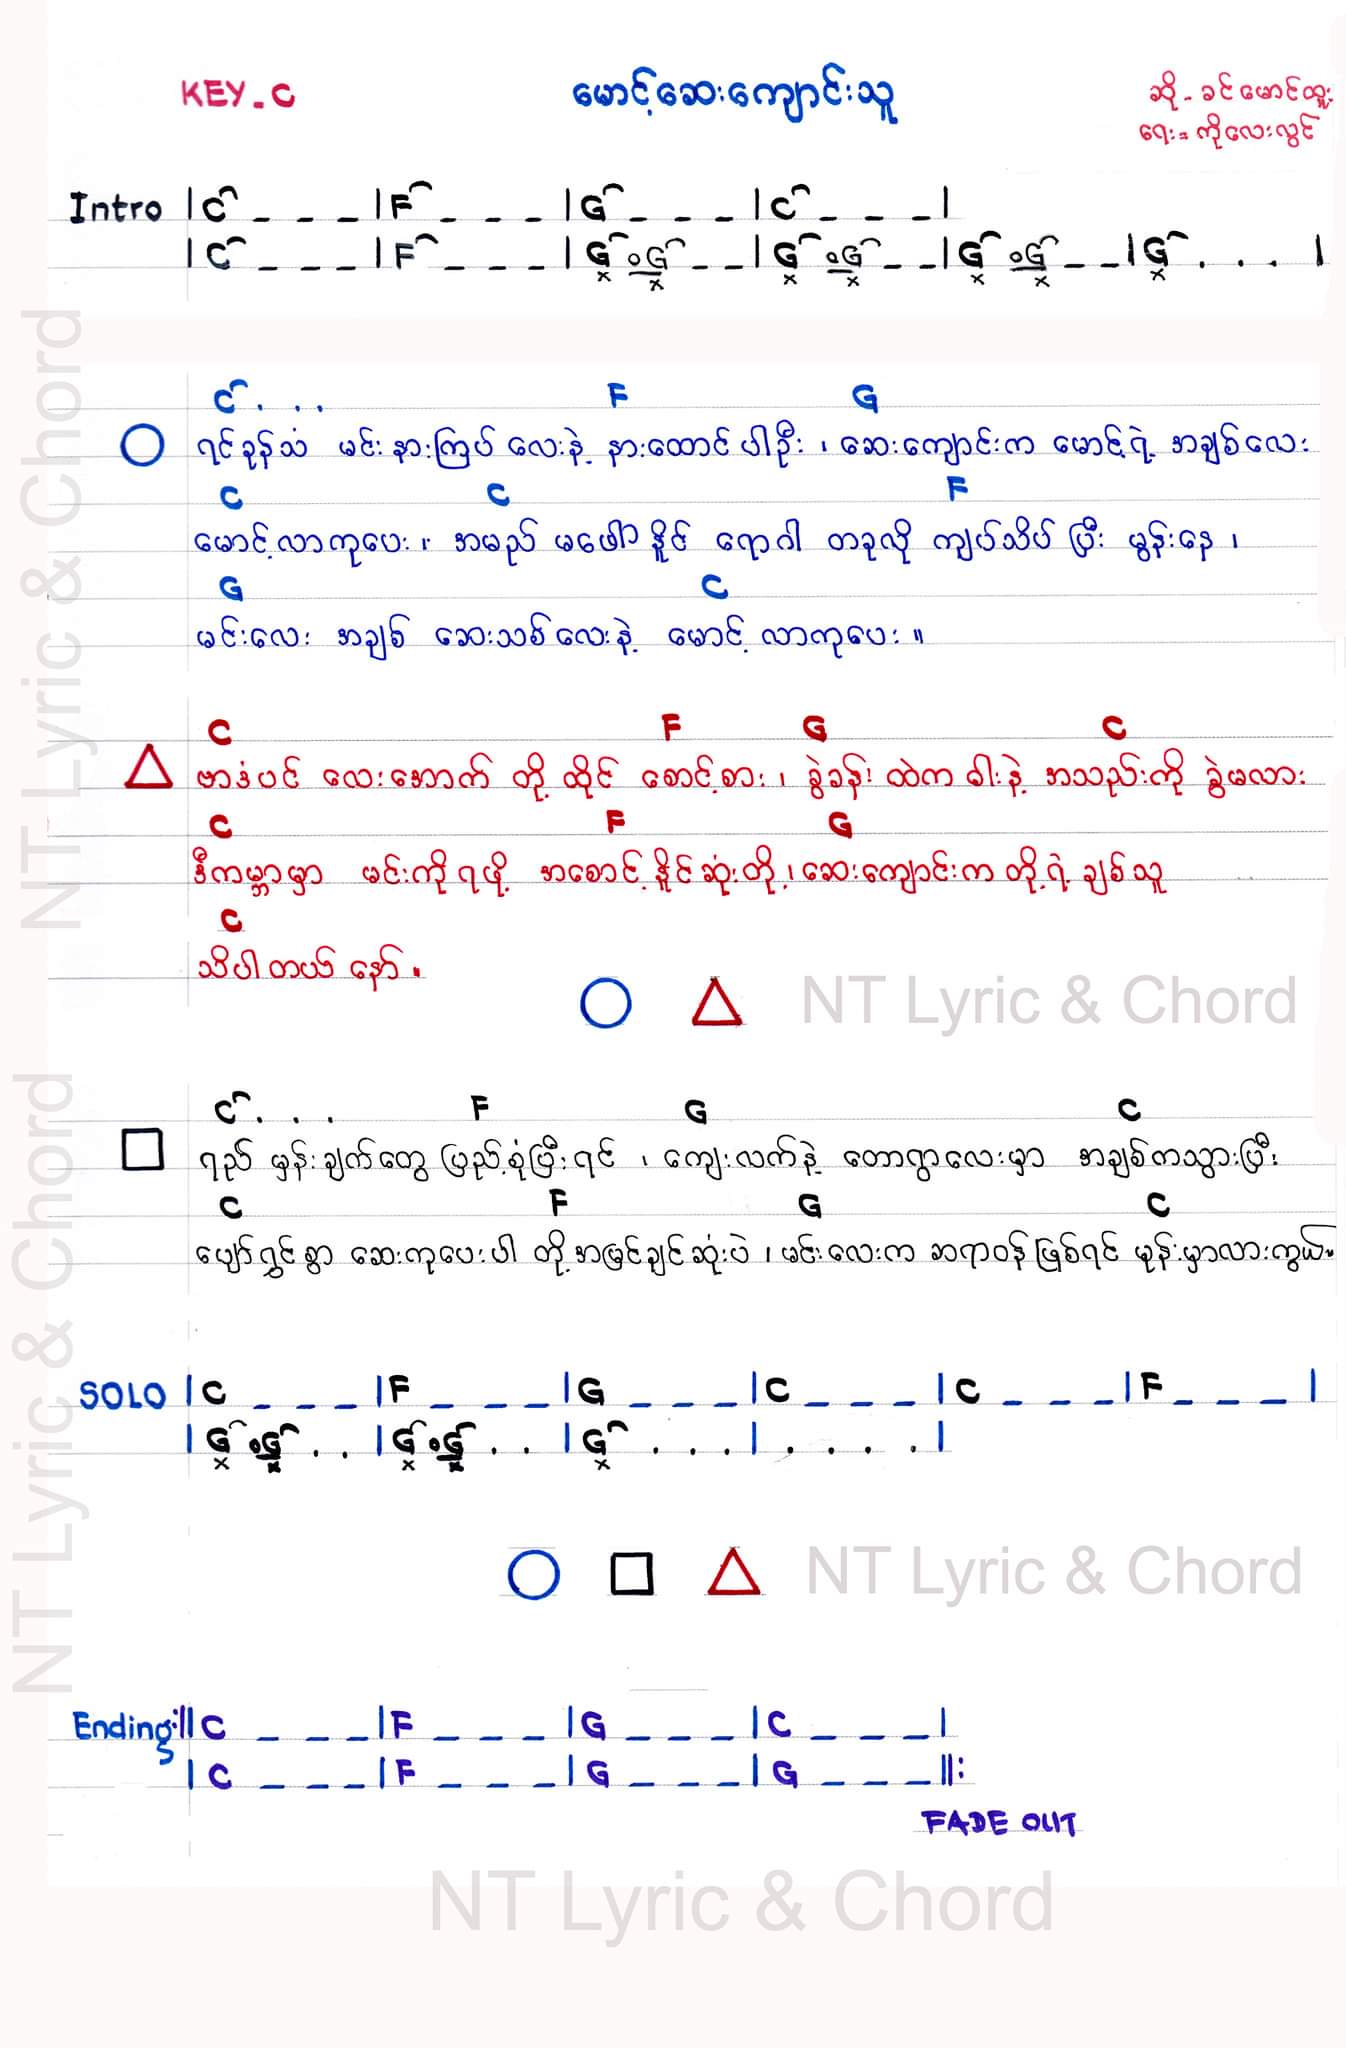 KEY - C
မောင့်ဆေးကျောင်းသူ
ဆို - ခင်မောင်ထူး
ရေး = ကိုလေးလွင်
Intro | C _ _ _ | F _ _ _ | G _ _ _ | C _ _ _ |
| C _ _ _ | F _ _ _ | G G _ _ | G G _ _ | G G _ _ | G . . . |
C . . . F G
ရင်ခုန်သံ မင်းနားကြပ်လေးနဲ့ နားထောင်ပါဦး ၊ ဆေးကျောင်းက မောင့်ရဲ့ အချစ်လေး
C C F
မောင့်လာကုပေး ။ အမည် မဖေါ်နိူင် ရောဂါ တခုလို ကျပ်သိပ်ပြီး မွန်းနေ ၊
G C
မင်းလေး အချစ် ဆေးသစ်လေးနဲ့ မောင့်လာကုပေး ။
C F G C
ဗာဒံပင် လေးအောက် တို့ထိုင် စောင့်စား ၊ ခွဲခန်း ထဲက ဓါးနဲ့ အသည်းကို ခွဲမလား
C F G
ဒီကမ္ဘာမှာ မင်းကိုရဖို့ အစောင့်နိူင်ဆုံးတို့ ၊ ဆေးကျောင်းက တို့ရဲ့ ချစ်သူ
C
သိပါတယ်နော် ။
NT Lyric & Chord
C . . . F G C
ရည်မှန်းချက်တွေ ပြည့်စုံပြီးရင် ၊ ကျေးလက်နဲ့ တောရွာလေးမှာ အချစ်ကသွားပြီး
C F G C
ပျော်ရွှင်စွာ ဆေးကုပေးပါ တို့အမြင်ချင်ဆုံးပဲ ၊ မင်းလေးက ဆရာဝန်ဖြစ်ရင် မုန်းမှာလားကွယ် ။
SOLO | C _ _ _ | F _ _ _ | G _ _ _ | C _ _ _ | C _ _ _ | F _ _ _ |
| G G . . | G G . . | G . . . | . . . . |
NT Lyric & Chord
Ending :|| C _ _ _ | F _ _ _ | G _ _ _ | C _ _ _ |
| C _ _ _ | F _ _ _ | G _ _ _ | G _ _ _ ||:
FADE OUT
NT Lyric & Chord
NT Lyric & Chord
NT Lyric & Chord